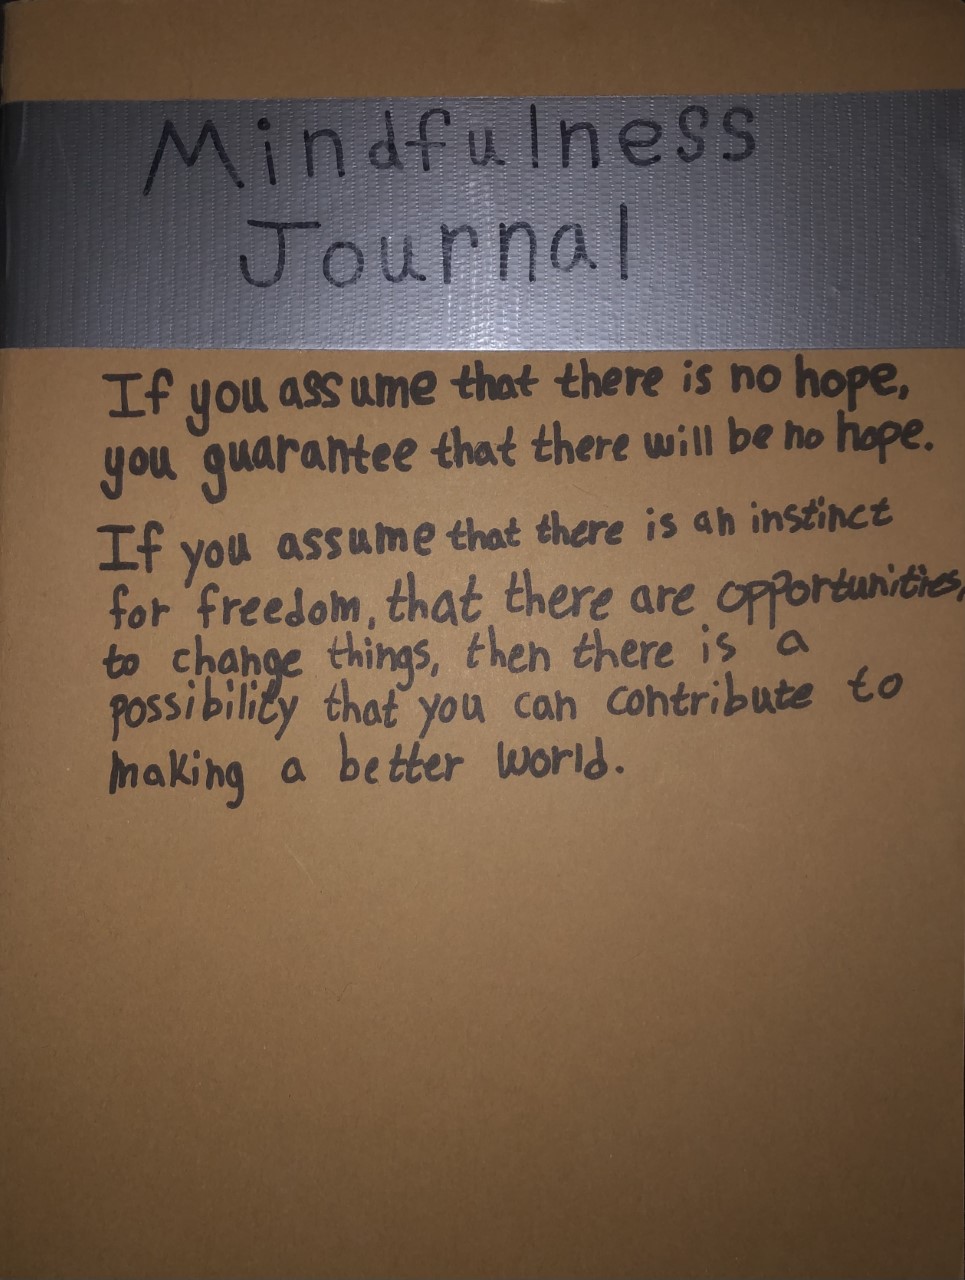 Mindfulness
Journal
If you assume that there is no hope,
you guarantee that there will be no hope.
If you assume that there is an instinct
for freedom, that there are opportunities,
to change things, then there is a
possibility that you can contribute to
making a better world.